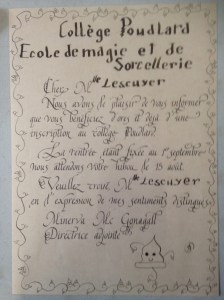 Collège Poudlard
Ecole de magie et de
Sorcellerie
Cher Mlle Lescuyer
Nous avons le plaisir de vous informer
que vous bénéficiez d'ors et déjà d'une
inscription au collège Poudlard.
La rentrée étant fixée au 1er septembre
nous attendons votre hibou le 15 août.
Veuillez croire, Mlle Lescuyer
en l'expression de mes sentiments distingués
Minerva Mc Gonagall
Directrice adjointe